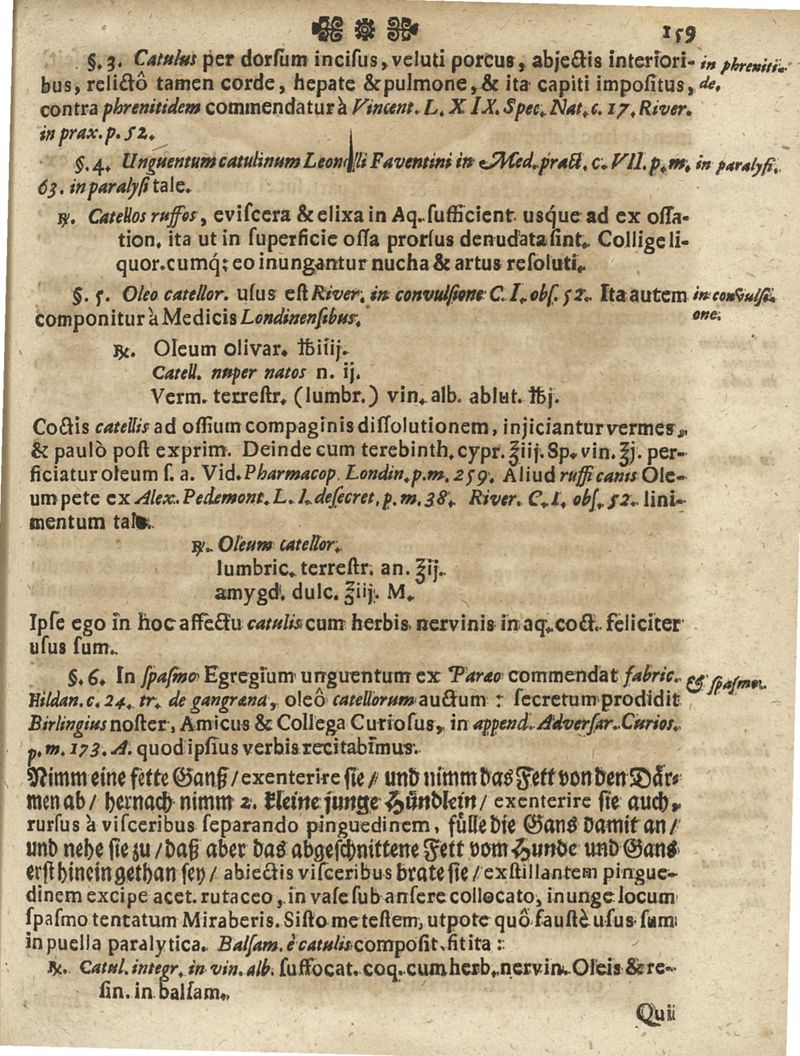 159
§. 3. Catulus per dorsum incisus, veluti porcus, abjectis interiori- in phreniti-
bus, relictô tamen corde, hepate & pulmone, & ita capiti impositus, de.
contra phrenitidem commendatur à Vincent. L. XIX. Spec. Nat. c. 17. River.
in prax. p. 52.
§. 4. Unguentum catulinum Leonelli Faventini in Med. pract. c. VII. p. m. in paralysi.
63. in paralysi tale.
℞. Catellos ruffos, eviscera & elixa in Aq. sufficient. usque ad ex ossa-
tion. ita ut in superficie ossa prorsus denudata sint. Collige li-
quor. cumq́; eo inungantur nucha & artus resoluti.
§. 5. Oleo catellor. usus est River. in convulsione C. I. obs. 52. Ita autem in convulsi-
componitur à Medicis Londinensibus. one.
℞. Oleum olivar. ℔iiij.
Catell. nuper natos n. ij.
Verm. terrestr. (lumbr.) vin. alb. ablut. ℔j.
Coctis catellis ad ossium compaginis dissolutionem, injiciantur vermes,
& paulò post exprim. Deinde cum terebinth. cypr. ℥iij. Sp. vin. ℥j. per-
ficiatur oleum s. a. Vid. Pharmacop. Londin. p. m. 259. Aliud ruffi canis Ole-
um pete ex Alex. Pedemont. L. I. de secret. p. m. 38. River. C. I. obs. 52. lini-
mentum tale.
℞. Oleum catellor.
lumbric. terrestr. an. ℥ij.
amygd. dulc. ℥iij. M.
Ipse ego in hoc affectu catulis cum herbis nervinis in aq. coct. feliciter
usus sum.
§. 6. In spasmo Egregium unguentum ex Paræo commendat fabric. & spasmo.
Hildan. c. 24. tr. de gangræna, oleô catellorum auctum: secretum prodidit
Birlingius noster, Amicus & Collega Curiosus, in append. Adversar. Curios.
p. m. 173. A. quod ipsius verbis recitabimus.
Nimm eine fette Ganß / exenterire sie / und nimm das Fett von den Där-
men ab / hernach nimm 2. kleine junge Hündlein / exenterire sie auch,
rursus à visceribus separando pinguedinem, fülle die Gans damit an /
und nehe sie zu / daß aber das abgeschnittene Fett vom Hunde und Gans
erst hinein gethan sey / abiectis visceribus brate sie / exstillantem pingue-
dinem excipe acet. rutaceo, in vase sub ansere collocato, inunge locum
spasmo tentatum Miraberis. Sisto me testem, utpote quô faustè usus sum
in puella paralytica. Balsam. è catulis composit. fit ita:
℞. Catul. integr. in vin. alb. suffocat. coq. cum herb. nervin. Oleis & re-
sin. in balsam.
Qui